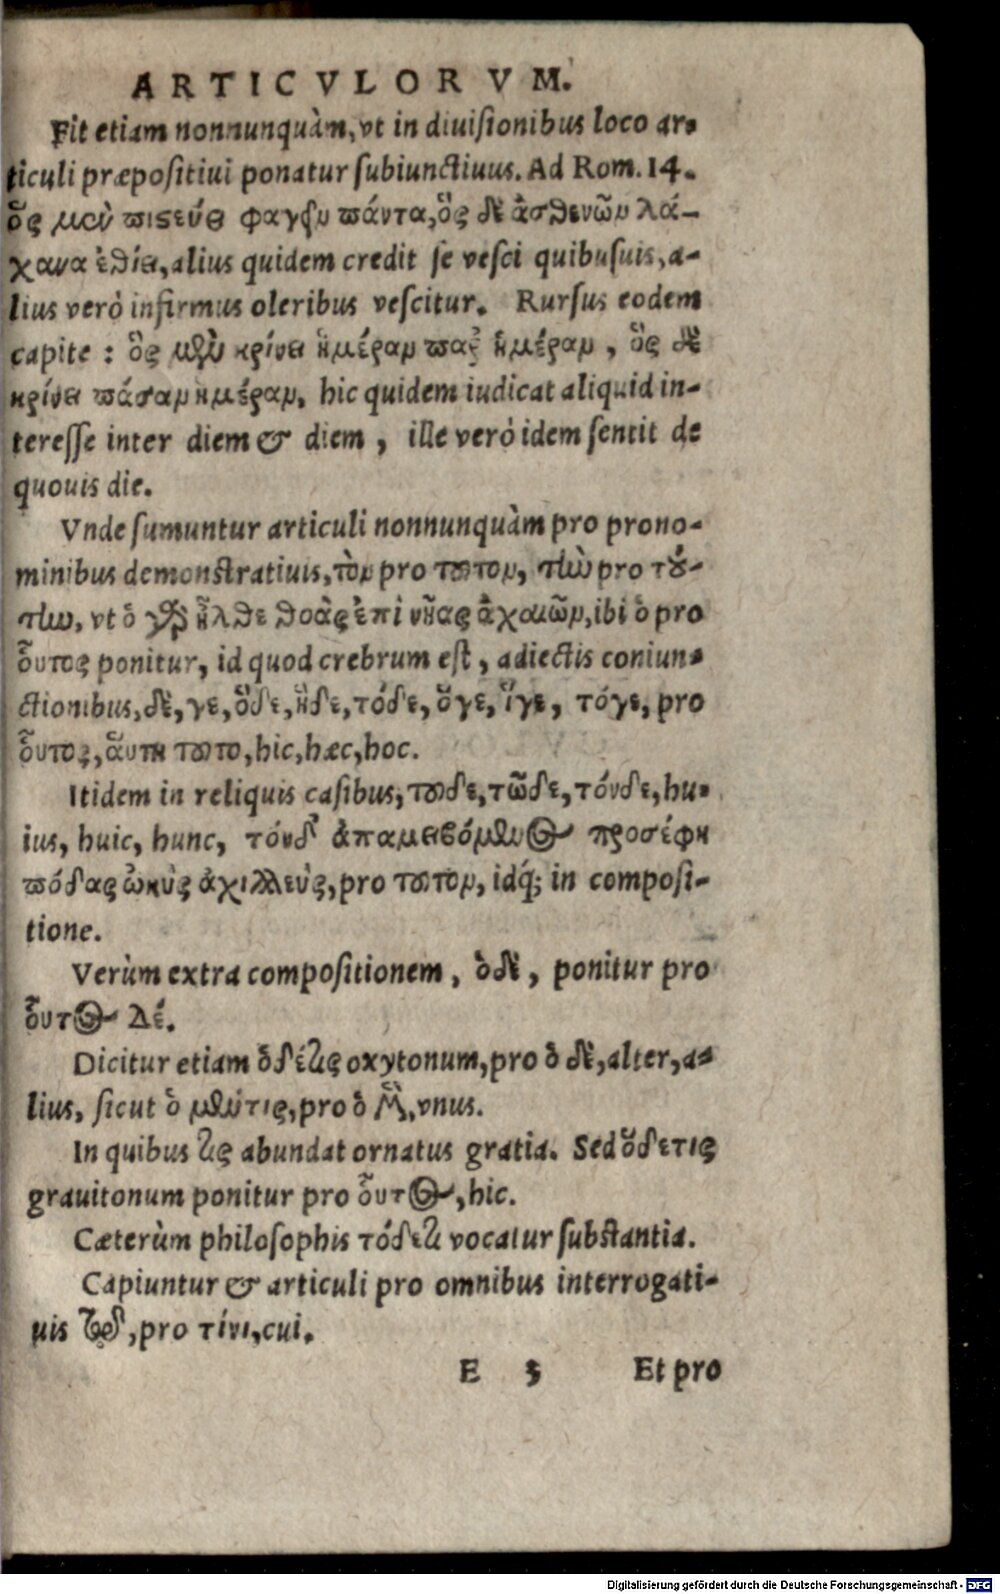 ARTICVLORVM.
Fit etiam nonnunquàm, vt in diuisionibus loco ar-
ticuli præpositiui ponatur subiunctiuus. Ad Rom. 14.
ὃς μὲν πιστεύει φαγεῖν πάντα, ὃς δὲ ἀσθενῶν λά-
χανα ἐθίει, alius quidem credit se vesci quibusuis, a-
lius verò infirmus oleribus vescitur. Rursus eodem
capite : ὃς μὲν κρίνει ἡμέραν παρ' ἡμέραν , ὃς δὲ
κρίνει πάσαν ημέραν, hic quidem iudicat aliquid in-
teresse inter diem & diem , ille verò idem sentit de
quouis die.
Vnde sumuntur articuli nonnunquàm pro prono-
minibus demonstratiuis, τὸν pro τοῦτον, τὴν pro τού-
την, vt ὁ γὰρ ἦλθε θοὰς ἐπὶ νῆας ἀχαιῶν, ibi ὁ pro
οὗτος ponitur, id quod crebrum est , adiectis coniun-
ctionibus, δὲ, γε, ὅδε, ἥδε, τόδε, ὅγε, ἥγε, τόγε, pro
οὗτος, αὕτη τοῦτο, hic, hæc, hoc.
Itidem in reliquis casibus, τοῦδε, τῶδε, τόνδε, hu-
ius, huic, hunc, τόνδ' ἀπαμειβόμενος προσέφη
πόδας ὠκὺς ἀχιλλεὺς, pro τοῦτον, idq́; in composi-
tione.
Verùm extra compositionem , ὁ δὲ , ponitur pro
οὗτος δέ.
Dicitur etiam ὁ δέτις oxytonum, pro ὁ δὲ, alter, a-
lius, sicut ὁ μέντις, pro ὁ μὲν, vnus.
In quibus τις abundat ornatus gratia. Sed ὅδετις
grauitonum ponitur pro οὗτος, hic.
Cæterùm philosophis τόδετι vocatur substantia.
Capiuntur & articuli pro omnibus interrogati-
uis τῷδ', pro τίνι, cui.
E 5 Et pro
Digitalisierung gefördert durch die Deutsche Forschungsgemeinschaft - DFG